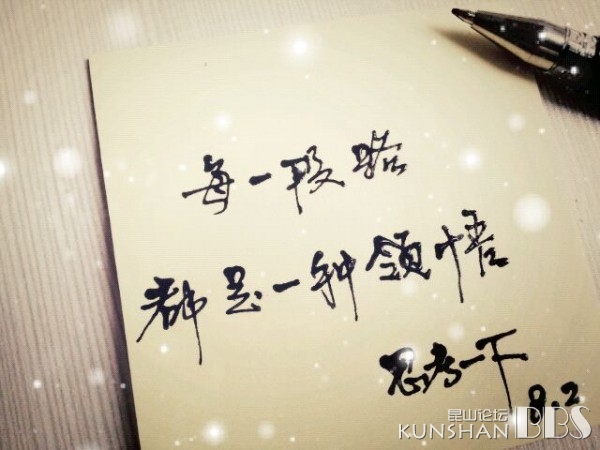 每一段路
都是一种领悟
思考一下
8.2
昆山论坛
KUNSHAN BBS